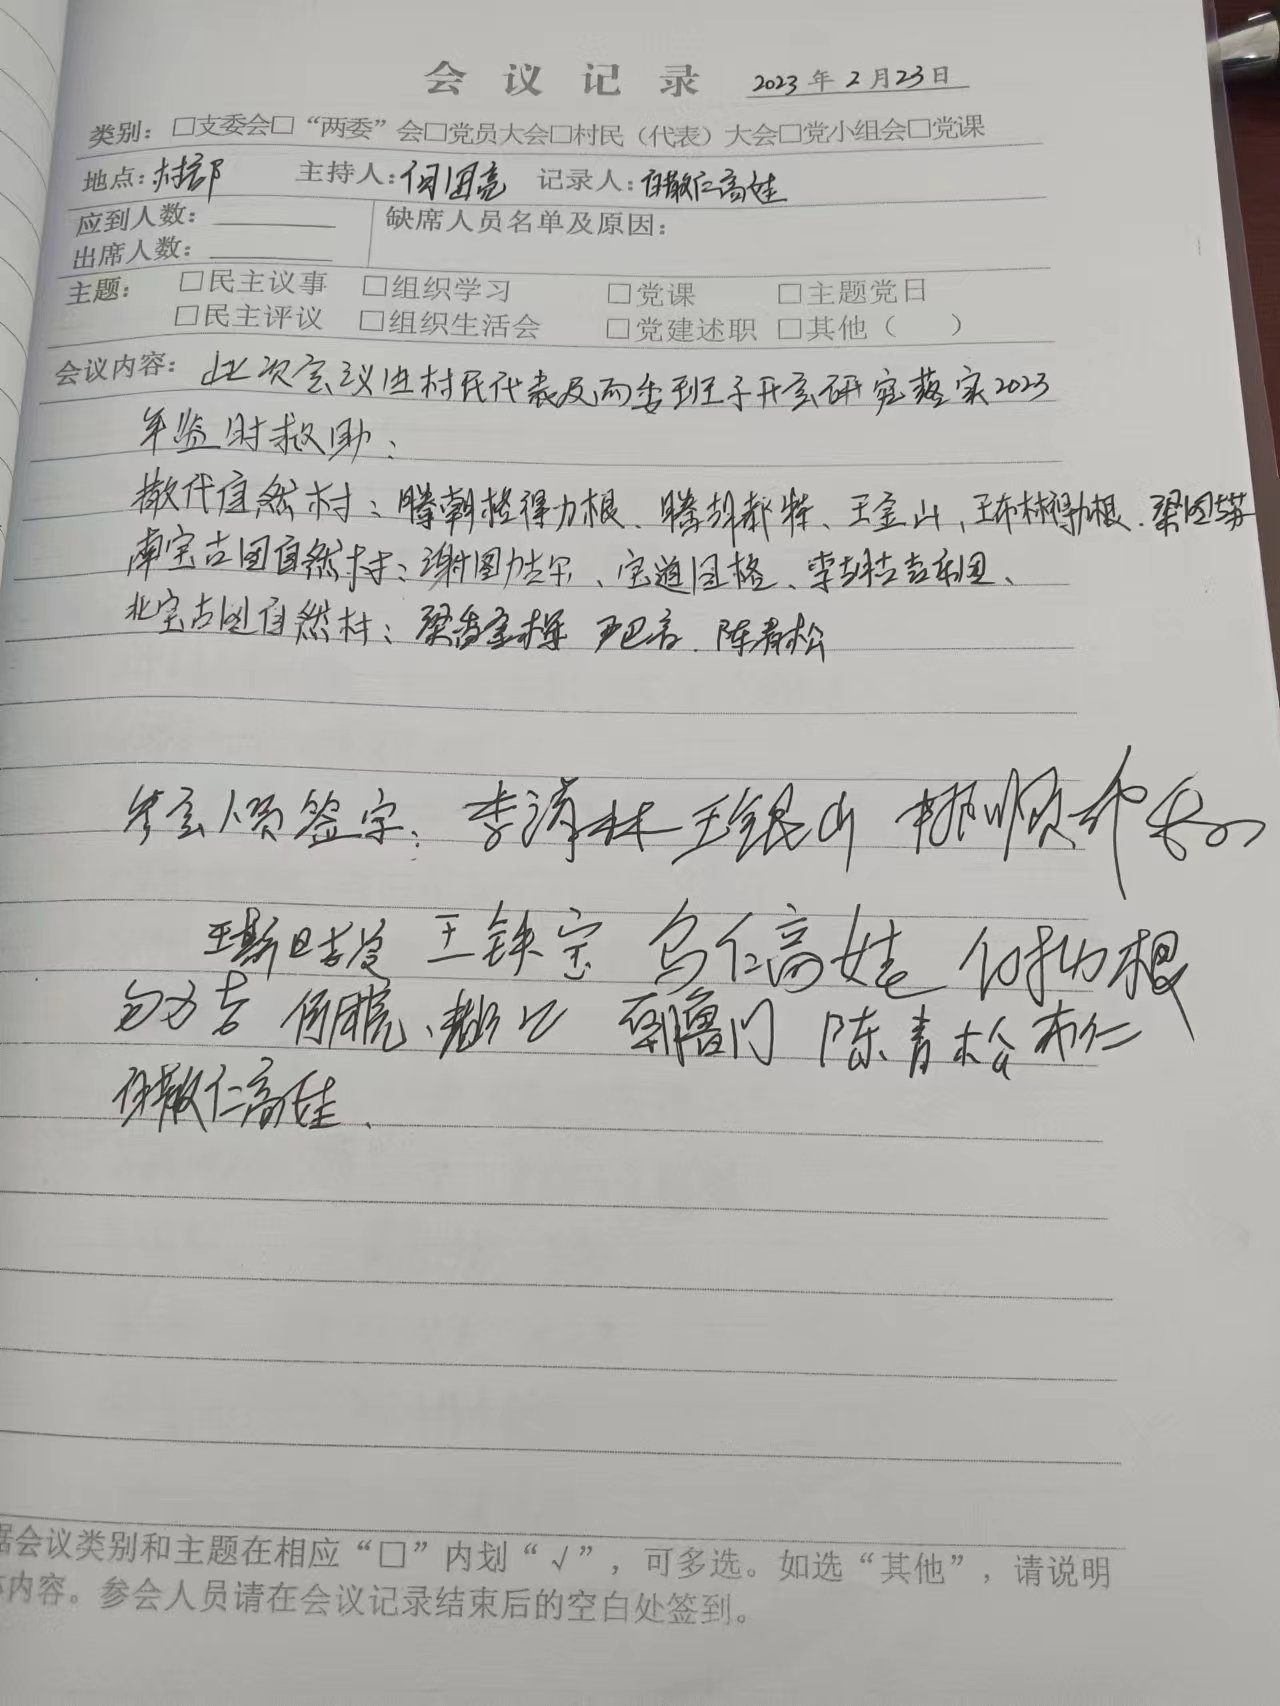 会议记录 2023年2月23日
类别：□支委会□“两委”会□党员大会□村民（代表）大会□党小组会□党课
地点：村部 主持人：何国亮 记录人：白散仁高娃
应到人数： 缺席人员名单及原因：
出席人数：
主题： □民主议事 □组织学习 □党课 □主题党日
□民主评议 □组织生活会 □党建述职 □其他（ ）
会议内容：此次会议由村民代表及两委班子开会研究落实2023
年临时救助：
散代自然村：腾朝格得力根、腾胡都特、王金山、王布林得力根、梁图
南宝古图自然村：谢图力古尔、宝道图格、李 吉
北宝古图自然村：梁 金 巴音、陈青松
参会人员签字：李 林 王银山 顺
王斯日古冷 王铁宝 乌仁高娃
何国亮、 门 陈青松 布仁
白散仁高娃、
据会议类别和主题在相应“□”内划“√”，可多选。如选“其他”，请说明
内容。参会人员请在会议记录结束后的空白处签到。